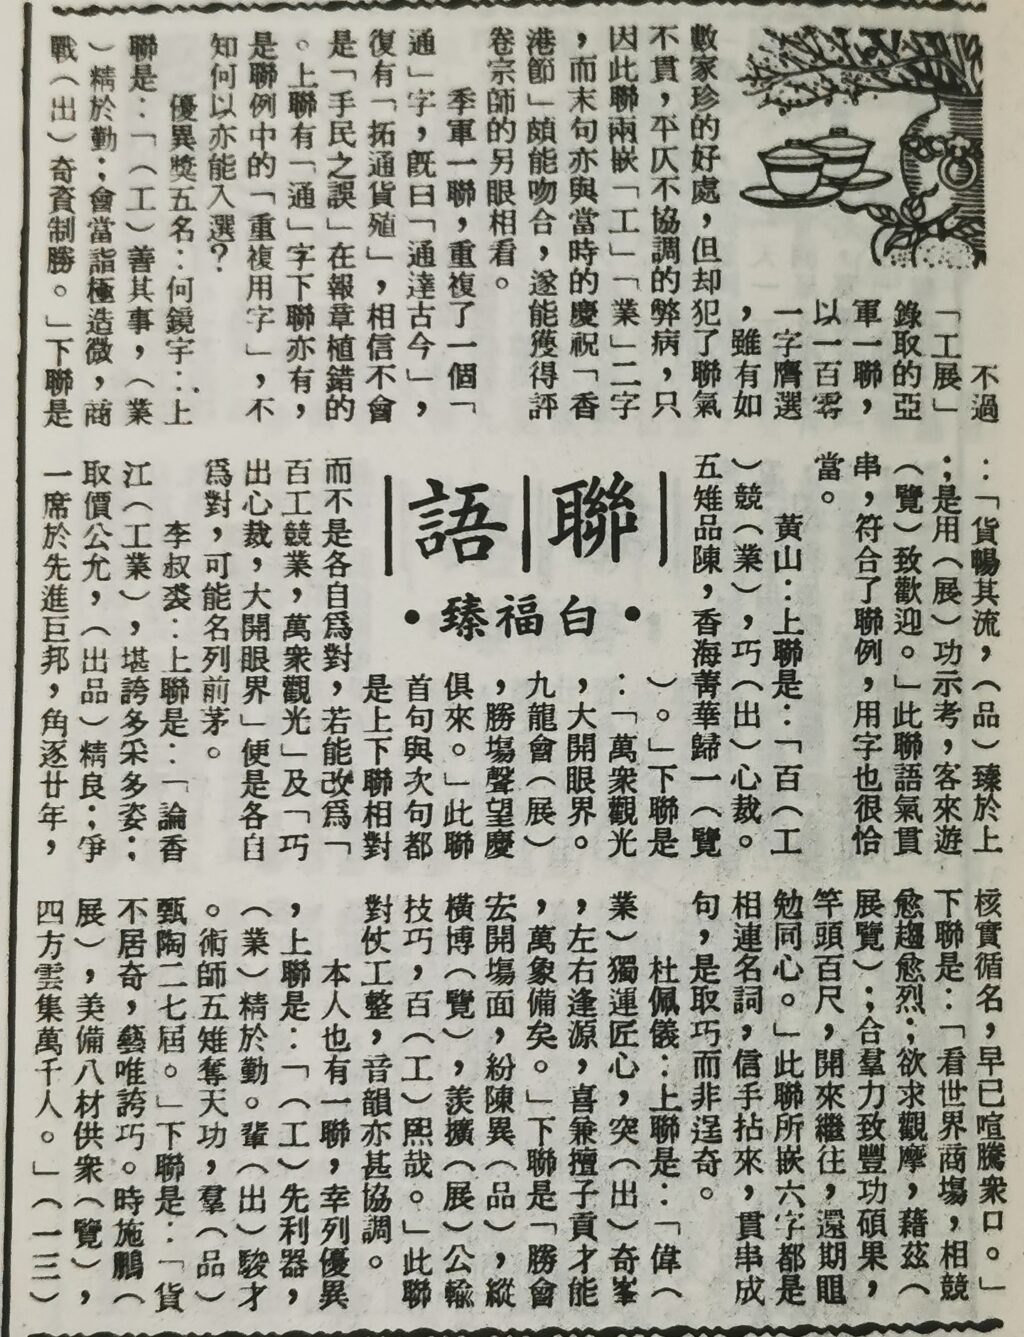 聯語
•白福臻•
不過
「工展」
錄取的亞
軍一聯，
以一百零
一字膺選
，雖有如
數家珍的好處，但却犯了聯氣
不貫，平仄不協調的弊病，只
因此聯兩嵌「工」「業」二字
，而末句亦與當時的慶祝「香
港節」頗能吻合，遂能獲得評
卷宗師的另眼相看。
季軍一聯，重複了一個「
通」字，旣曰「通達古今」，
復有「拓通貨殖」，相信不會
是「手民之誤」在報章植錯的
。上聯有「通」字下聯亦有，
是聯例中的「重複用字」，不
知何以亦能入選？
優異獎五名：何鏡宇：上
聯是：「（工）善其事，（業
）精於勤；會當詣極造微，商
戰（出）奇資制勝。」下聯是
：「貨暢其流，（品）臻於上
；是用（展）功示考，客來遊
（覽）致歡迎。」此聯語氣貫
串，符合了聯例，用字也很恰
當。
黃山：上聯是：「百（工
）競（業），巧（出）心裁。
五雉品陳，香海菁華歸一（覽
）。」下聯是
：「萬衆觀光
，大開眼界。
九龍會（展）
，勝塲聲望慶
俱來。」此聯
首句與次句都
是上下聯相對
而不是各自爲對，若能改爲「
百工競業，萬衆觀光」及「巧
出心裁，大開眼界」便是各自
爲對，可能名列前茅。
李叔裘：上聯是：「論香
江（工業），堪誇多采多姿；
取價公允，（出品）精良；爭
一席於先進巨邦，角逐廿年，
核實循名，早已喧騰衆口。」
下聯是：「看世界商塲，相競
愈趨愈烈；欲求觀摩，藉茲（
展覽）；合羣力致豐功碩果，
竿頭百尺，開來繼往，還期黽
勉同心。」此聯所嵌六字都是
相連名詞，信手拈來，貫串成
句，是取巧而非逞奇。
杜佩儀：上聯是：「偉（
業）獨運匠心，突（出）奇峯
，左右逢源，喜兼擅子貢才能
，萬象備矣。」下聯是「勝會
宏開塲面，紛陳異（品），縱
橫博（覽），羨擴（展）公輸
技巧，百（工）熙哉。」此聯
對仗工整，音韻亦甚協調。
本人也有一聯，幸列優異
，上聯是：「（工）先利器，
（業）精於勤。輩（出）駿才
。術師五雉奪天功，羣（品）
甄陶二七屆。」下聯是：「貨
不居奇，藝唯誇巧。時施鵬（
展），美備八材供衆（覽），
四方雲集萬千人。」（一三）